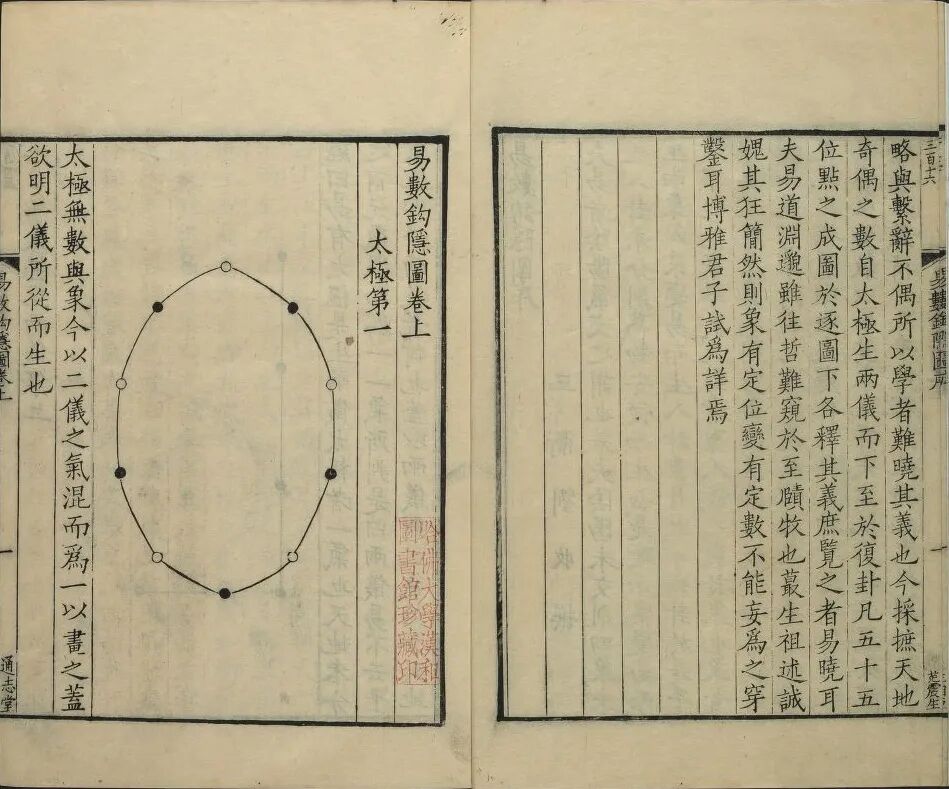 三百十六
略與繫辭不偶所以學者難曉其義也今採摭天地
奇偶之數自太極生兩儀而下至於復卦凡五十五
位點之成圖於逐圖下各釋其義庶覽之者易曉耳
夫易道淵邈雖往哲難窺於至賾牧也蕞生祖述誠
媿其狂簡然則象有定位變有定數不能妄爲之穿
鑿耳博雅君子試爲詳焉
易數鈎隱圖卷上
太極第一
哈佛大學漢和
圖書館珍藏印
太極無數與象今以二儀之氣混而爲一以畫之蓋
欲明二儀所從而生也
易數鈎隱圖卷上
一
通志堂